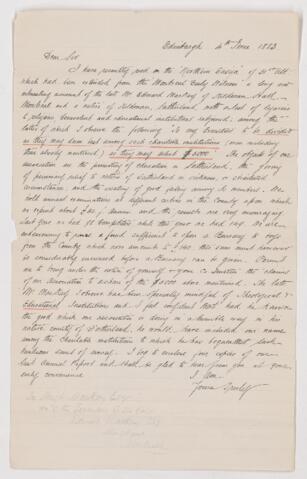 Edinburgh 4th June 1883
Dear Sir
I have recently read in the "Northern Ensign" of 31st Ult
which had been extracted from the Montreal Daily Witness a long and
interesting account of the late Mr Edward Mackay of Kildonan Hall
Montreal and a native of Kildonan, Sutherland, with a list of legacies
to religious benevolent and educational institutions adjoined; among the
latter of which I observe the following "to my Executors to be divided
as they may deem best among such charitable institutions (including
those already mentioned) as they may select $5000. The objects of our
association are the promoting of education in Sutherland, the giving
of pecuniary relief to natives of Sutherland in sickness, or straitened
circumstances, and the creating of good feeling among its members. We
hold annual examinations at different centres in the County upon which
we expend about £20 / annum and the results are very encouraging
what one has just been completed while this year we had
endeavouring to raise a fund sufficient to found a Bursary to boys
from the County which now amounts to £360 this sum must however
be considerably increased before a Bursary can be given. Permit
me to bring under the notice of yourself & your co Executors the claims
of our Association to a share of the $5000 above mentioned. The late
Mr Mackay I observe had been specially mindful of Theological &
Educational Institutions and I feel confident that had he known
the good which our association is doing in a humble way in his
native county of Sutherland, he would have included our name
among the Charitable institutions to which he has bequeathed such
handsome sums of money. I beg to enclose four copies of our
last Annual Report and shall be glad to hear from you at your
early convenience
I am
Yours Truly
Montreal